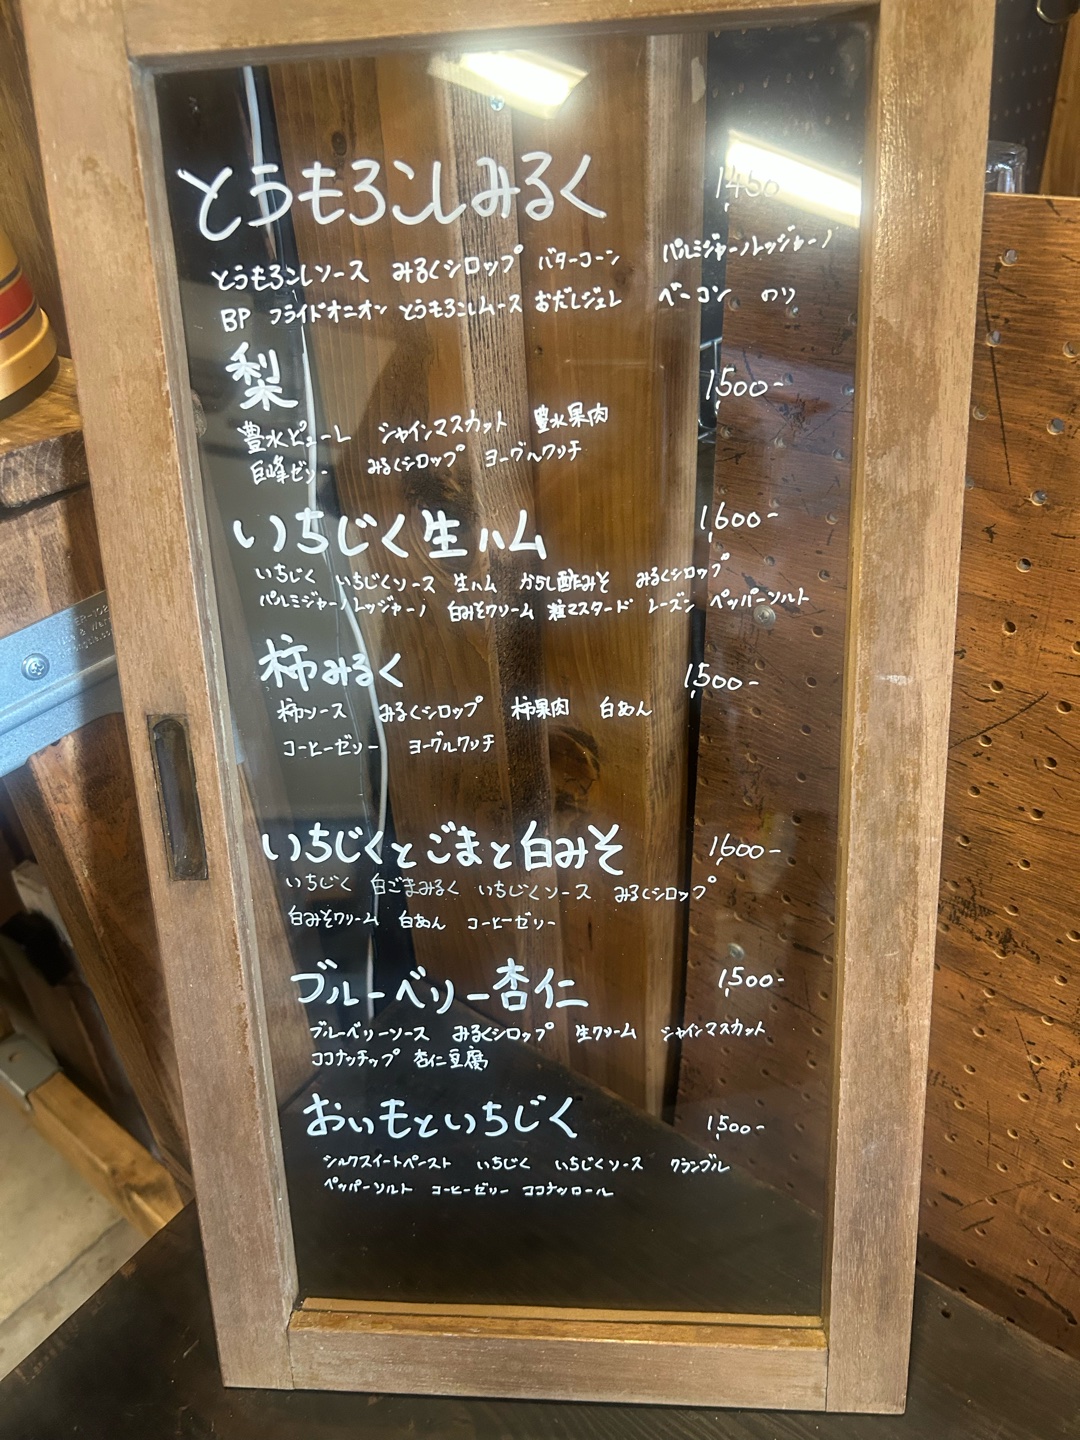 とうもろこしみるく 1,400-
とうもろこしソース みるくシロップ バターコーン パルミジャーノレッジャーノ
BP フライドオニオン とうもろこしムース おだしジュレ ベーコン のり
梨 1,500-
豊水ピューレ シャインマスカット 豊水果肉
巨峰ゼリー みるくシロップ ヨーグルクリチ
いちじく生ハム 1,600-
いちじく いちじくソース 生ハム からし酢みそ みるくシロップ
パルミジャーノレッジャーノ 白みそクリーム 粒マスタード レーズン ペッパーソルト
柿みるく 1,500-
柿ソース みるくシロップ 柿果肉 白あん
コーヒーゼリー ヨーグルクリチ
いちじくとごまと白みそ 1,600-
いちじく 白ごまみるく いちじくソース みるくシロップ
白みそクリーム 白あん コーヒーゼリー
ブルーベリー杏仁 1,500-
ブルーベリーソース みるくシロップ 生クリーム シャインマスカット
ココナッチップ 杏仁豆腐
おいもといちじく 1,500-
シルクスイートペースト いちじく いちじくソース クランブル
ペッパーソルト コーヒーゼリー ココナッツロール